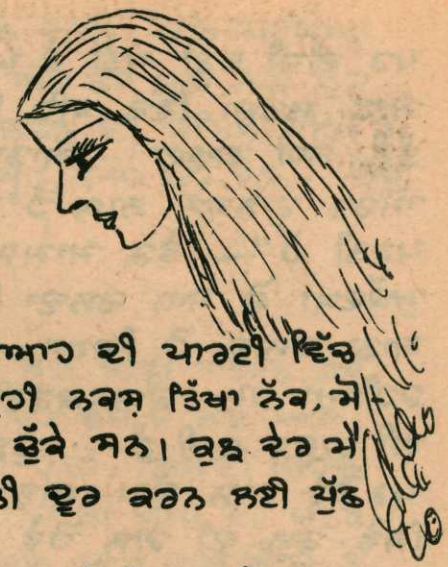 ਆਹ ਦੀ ਪਾਰਟੀ ਵਿੱਚ
ਹੀ ਨਕਸ਼ ਤਿੱਖਾ ਨੱਕ, ਮੋ-
ਚੁੱਕੇ ਸਨ। ਕੁਝ ਦੇਰ ਮੈਂ
ਦੂਰ ਕਰਨ ਲਈ ਪੁੱਛ